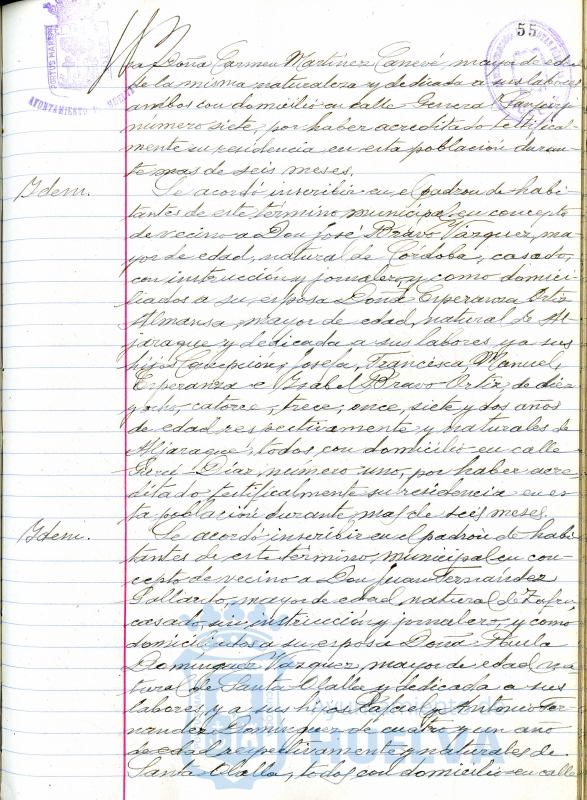 55
PORTUS MARIS
AYUNTAMIENTO
ra Doña Carmen Martínez Canevé, mayor de edad
de la misma naturaleza y dedicada a sus labores
ambos con domicilio en calle General
número siete, por haber acreditado testifical-
mente su residencia en esta población duran-
te mas de seis meses.
Idem. Se acordó inscribir en el padrón de habi-
tantes de este término municipal en concepto
de vecino a Don José Bravo Vázquez, ma-
yor de edad, natural de Córdoba, casado,
con instrucción y jornalero, y como domici-
liados a su esposa Doña Esperanza Ortiz
Almansa, mayor de edad, natural de Al-
jaraque y dedicada a sus labores, y a sus
hijos Concepción, Josefa, Francisca, Manuel,
Esperanza e Isabel Bravo Ortiz, de diez
y ocho, catorce, trece, once, siete y dos años
de edad respectivamente y naturales de
Aljaraque, todos con domicilio en calle
Garci Díaz, número uno, por haber acre-
ditado testificalmente su residencia en es-
ta población durante mas de seis meses.
Idem. Se acordó inscribir en el padrón de habi-
tantes de este término municipal en con-
cepto de vecino a Don Juan Fernández
Gallardo, mayor de edad, natural de Zafra,
casado, sin instrucción y jornalero, y como
domiciliados a su esposa Doña Paula
Domínguez Vázquez, mayor de edad, na-
tural de Santa Olalla y dedicada a sus
labores, y a sus hijos Rafael y Antonio Fer-
nández Domínguez de cuatro y un año
de edad respectivamente y naturales de
Santa Olalla, todos con domicilio en calle
Ayuntamiento de
HUELVA